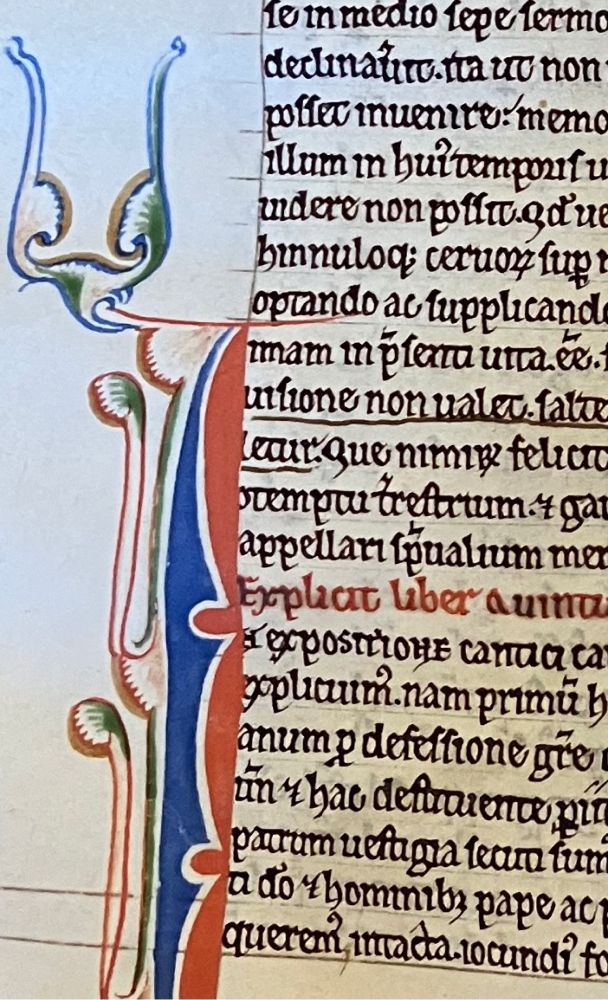 se in medio sepe sermo
declinauit. ita ut non
posset inuenire: memo
illum in hui᷒ temporis u
uidere non possit. qd̕ ue
hinnuloq; ceruoꝝ sup̱
optando ac supplicando
imam in p̄senti uita. ēē.
uisione non ualet. salte
letur. Que nimiꝝ felicit
otemptu t̄restrium. ⁊ ga
appellari sp̄ualium me
Explicit liber quintu
expositione cantici ca
explicuim᷒. nam primū h
anum ꝑ defessione gr̄e
tīn ⁊ hac destituente
patrum uestigia secuti sum
ti do ⁊ hominibꝫ pape ac
querem᷒ intacta. iocundi᷒ fo